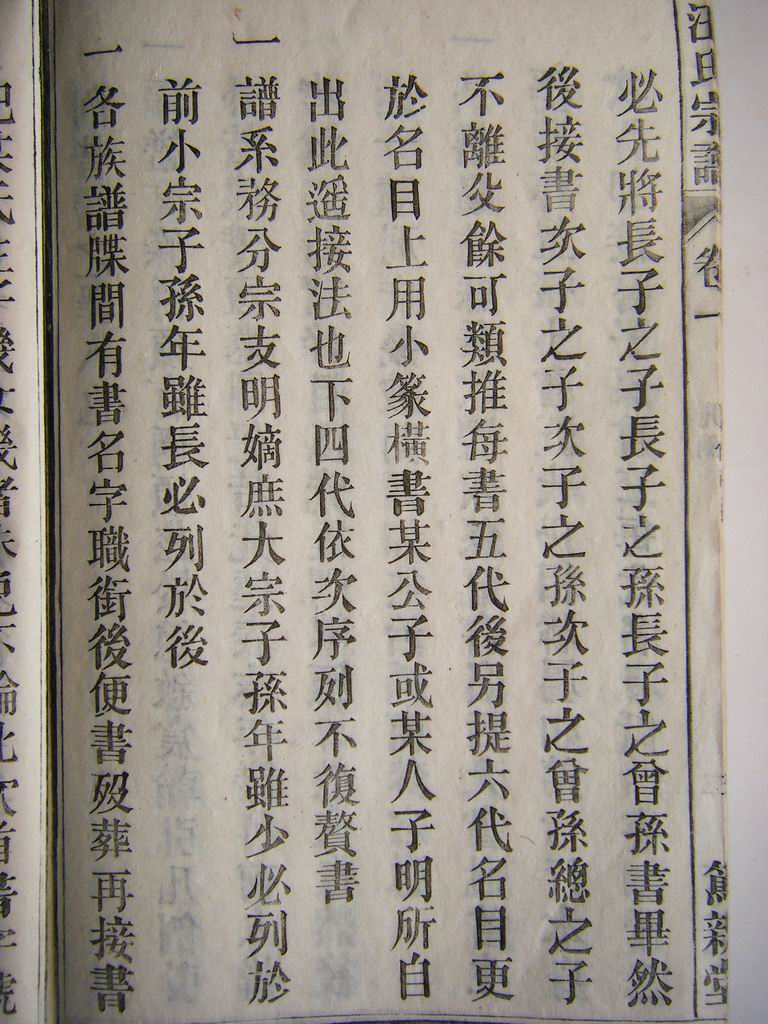 汪氏宗譜 卷一
篤新堂
必先將長子之子長子之孫長子之曾孫書畢然
後接書次子之子次子之孫次子之曾孫總之子
不離父餘可類推每書五代後另提六代名目更
於名目上用小篆橫書某公子或某人子明所自
出此遥接法也下四代依次序列不復贅書
一譜系務分宗支明嫡庶大宗子孫年雖少必列於
前小宗子孫年雖長必列於後
一各族譜牒間有書名字職銜後便書殁葬再接書